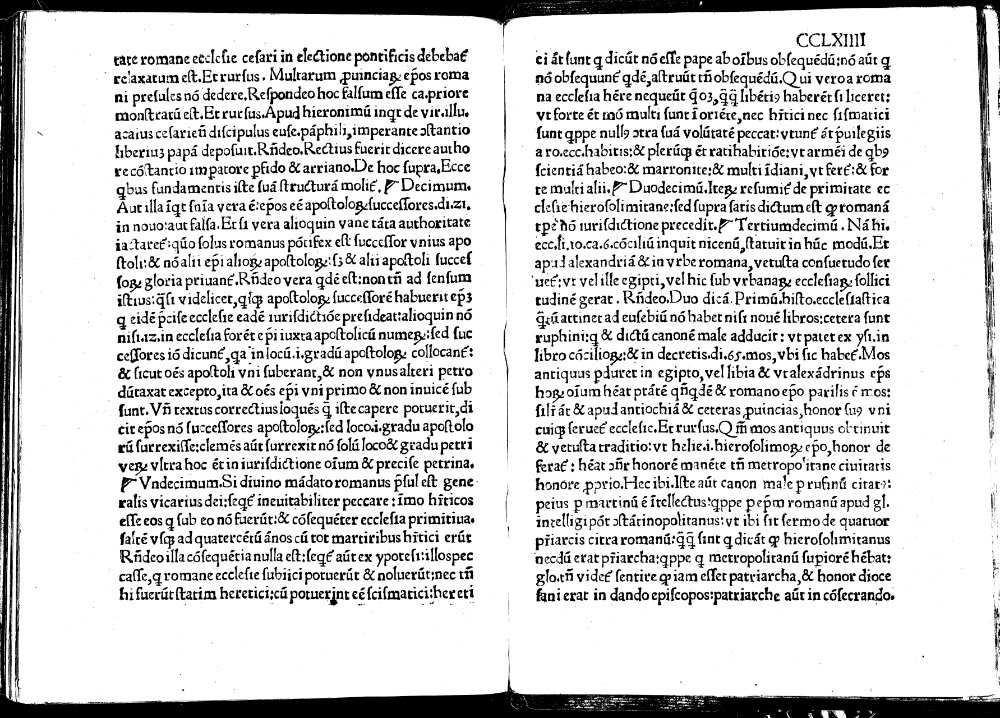 tate romane ecclesie cesari in electione pontificis debebat́
relaxatum est. Et rursus. Multarum ꝓuinciaꝝ ep̄os roma
ni presules nō dedere. Respondeo hoc falsum esse ca. priore
monstratū est. Et rursus. Apud hieronimū inqt de vir. illu.
acaius cesarieñ discipulus euse. pāphili, imperante ↄstantio
liberiuȝ papā deposuit. Rñdeo. Rectius fuerit dicere autho
re cōstantio impatore ꝑfido & arriano. De hoc supra. Ecce
qbus fundamentis iste suā structurā molit́. Decimum.
Aut illa iqt snīa vera ē: ep̄os eē apostoloꝝ successores. di. 21.
in nouo: aut falsa. Et si vera alioquin vane tāta authoritate
iactaret́: quo solus romanus pōtifex est successor vnius apo
stoli: & nō alii ep̄i alioꝝ apostoloꝝ: sȝ & alii apostoli succes
soꝝ gloria priuant́. Rñdeo vera qdē est: non tñ ad sensum
istius: qsi videlicet, qsqȝ apostoloꝝ successorē habuerit ep̄ȝ
q eidē p̄cise ecclesie eadē iurisdictiōe presideat: alioquin nō
nisi. 12. in ecclesia forēt ep̄i iuxta apostolicū numeꝝ: sed suc
cessores iō dicunt́, qa in locū. i. gradū apostoloꝝ collocant́:
& sicut oēs apostoli vni suberant, & non vnus alteri petro
dūtaxat excepto, ita & oēs ep̄i vni primo & non inuicē sub
sunt. Vñ textus correctius loquēs q̄ iste capere potuerit, di
cit ep̄os nō successores apostoloꝝ: sed loco. i. gradu apostolo
rū surrexisse: clemēs aūt surrexit nō solū loco & gradu petri
veꝝ vltra hoc ēt in iurisdictione oīum & precise petrina.
Vndecimum. Si diuino mādato romanus p̄sul est gene
ralis vicarius dei: seqt́ ineuitabiliter peccare: īmo hr̄ticos
esse eos q sub eo nō fuerūt: & cōsequēter ecclesia primitiua.
saltē vsqȝ ad quatercētū ános cū tot martiribus hr̄tici erūt
Rñdeo illa cōsequētia nulla est: seqt́ aūt ex ypotesi: illos pec
casse, q romane ecclesie subiici potuerūt & noluerūt: nec tñ
hi fuerūt statim heretici: cū potuerint eē scismatici: hereti
CCLXIIII
ci át sunt q dicūt nō esse pape ab oībus obsequēdū: nō aūt q
nō obsequunt́ qdē, astruūt tñ obsequēdū. Qui vero a roma
na ecclesia hēre nequeūt qōȝ, q̄q̄ libētiꝰ haberēt si liceret:
vt forte ēt mō multi sunt ī oriēte, nec hr̄tici nec sismatici
sunt qppe nullꝰ ↄtra suā volūtatē peccat: vtunt́ át p̄uilegiis
a ro. ecc. habitis: & plerūqȝ ēt ratihabitiōe: vt armēi de qbꝰ
scientiā habeo: & marronite: & multi īdiani, vt fert́: & for
te multi alii. Duodecimū. Iteꝝ resumit́ de primitate ec
clesie hierosolimitane: sed supra satis dictum est ꝙ romanā
tpē nō iurisdictione precedit. Tertiumdecimū. Nā hi.
ecc. li. 10. ca. 6. cōciliū inquit nicenū, statuit in hūc modū. Et
apud alexandriā & in vrbe romana, vetusta consuetudo ser
uet́: vt vel ille egipti, vel hic sub vrbanaꝝ ecclesiaꝝ sollici
tudinē gerat. Rñdeo. Duo dicā. Primū. histo. ecclesiastica
q̄tū attinet ad eusebiū nō habet nisi nouē libros: cetera sunt
ruphini: q & dictū canonē male adducit: vt patet ex ysi. in
libro cōcilioꝝ: & in decretis. di. 65. mos, vbi sic habet́. Mos
antiquus pduret in egipto, vel libia & vt alexādrinus ep̄s
hoꝝ oīum hēat ptātē qñqdē & romano ep̄o parilis ē mos:
silr̄ át & apud antiochiā & ceteras ꝓuincias, honor suꝰ vni
cuiqȝ seruet́ ecclesie. Et rursus. Qm̄ mos antiquus obtinuit
& vetusta traditio: vt helie. i. hierosolimoꝝ ep̄o, honor de
ferat́: hēat ↄñr honorē manēte tñ metropolitane ciuitatis
honore ꝓprio. Hec ibi. Iste aūt canon male p rufinū citatꝰ:
peius p martinū ē ītellectus: qppe p ep̄m romanū apud gl.
intelligi pōt ↄstātinopolitanus: vt ibi sit sermo de quatuor
pr̄iarcis citra romanū: q̄q̄ sunt q dicāt ꝙ hierosolimitanus
necdū erat pr̄iarcha: qppe q metropolitanū supiorē hēbat:
glo. tñ videt́ sentire ꝙ iam esset patriarcha, & honor dioce
sani erat in dando episcopos: patriarche aūt in cōsecrando.